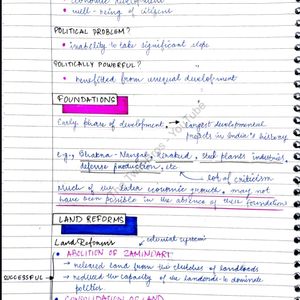 economic development
• well-being of citizens
POLITICAL PROBLEM?
• inability to take significant steps
POLITICALLY POWERFUL?
• benefitted from unequal development
FOUNDATIONS
Early phase of development → largest developmental
projects in India's history
e.g., Bhakra-Nangal, Hirakud, steel plants industries,
defense production, etc
lot of criticism
Much of the later economic growth may not
have been possible in the absence of these foundations
LAND REFORMS
Land Reforms
colonial system
SUCCESSFUL
ABOLITION OF ZAMINDARI
→ released land from the clutches of landlords
→ reduced the capacity of the landlords to dominate
politics.
• CONSOLIDATION OF LAND